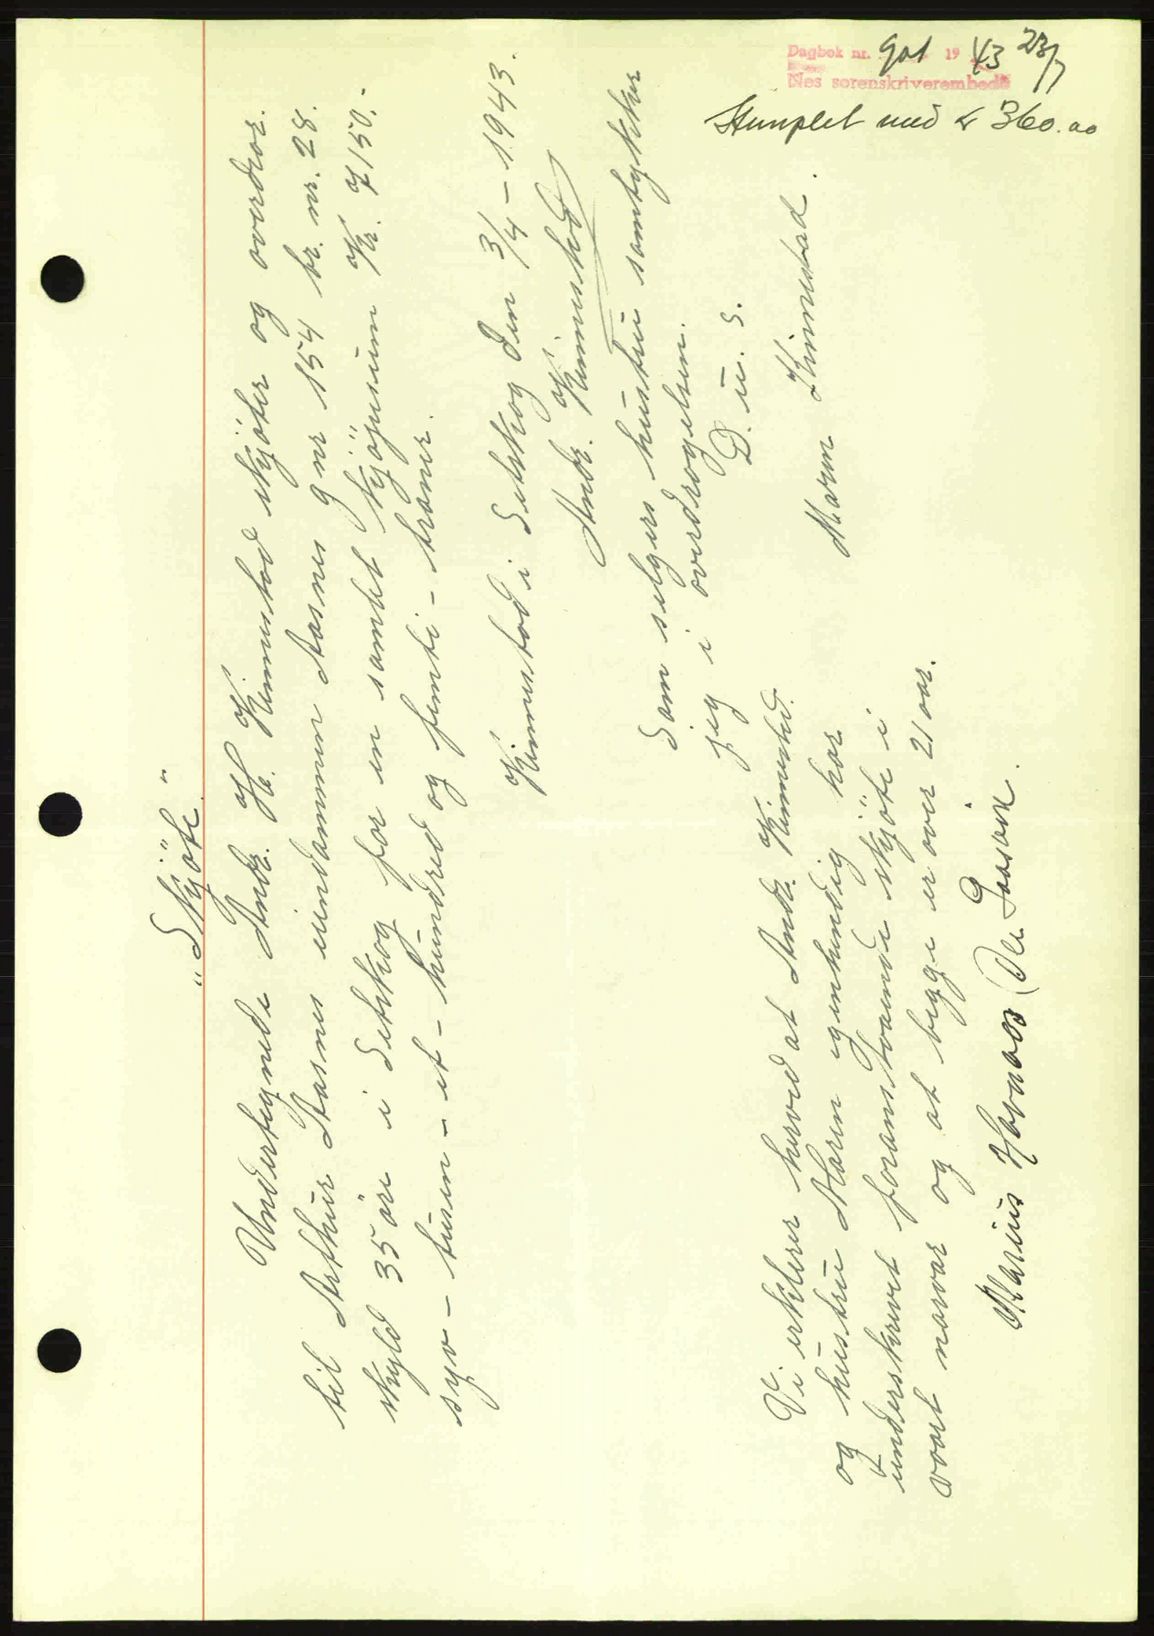 Dagbok nr. 901 1943 23/7
Nes sorenskriverembede
Stemplet med kr 360.00
"Skjöte."
Undertegnede Andr. H. Kinnestad skjöter og overdrar
til Arthur Aasnes eiendommen Aasnes gnr 154 br. nr. 28.
skyld 35 öre i Setskog for en samlet kjöpesum Kr. 7150.-
syv-tusen-et-hundred og femti-kroner.
Kinnestad i Setskog den 3/4-1943.
Andr. Kinnestad
Som selgers hustru samtykker
jeg i overdragelsen.
D. u. s.
Maren Kinnestad.
Vi erklerer herved at Andr. Kinnestad.
og hustru Maren egenhendig har
underskrevet foranstaaende skjöte i
vaart nærvær og at begge er over 21 aar.
Marius Havnaas Ole